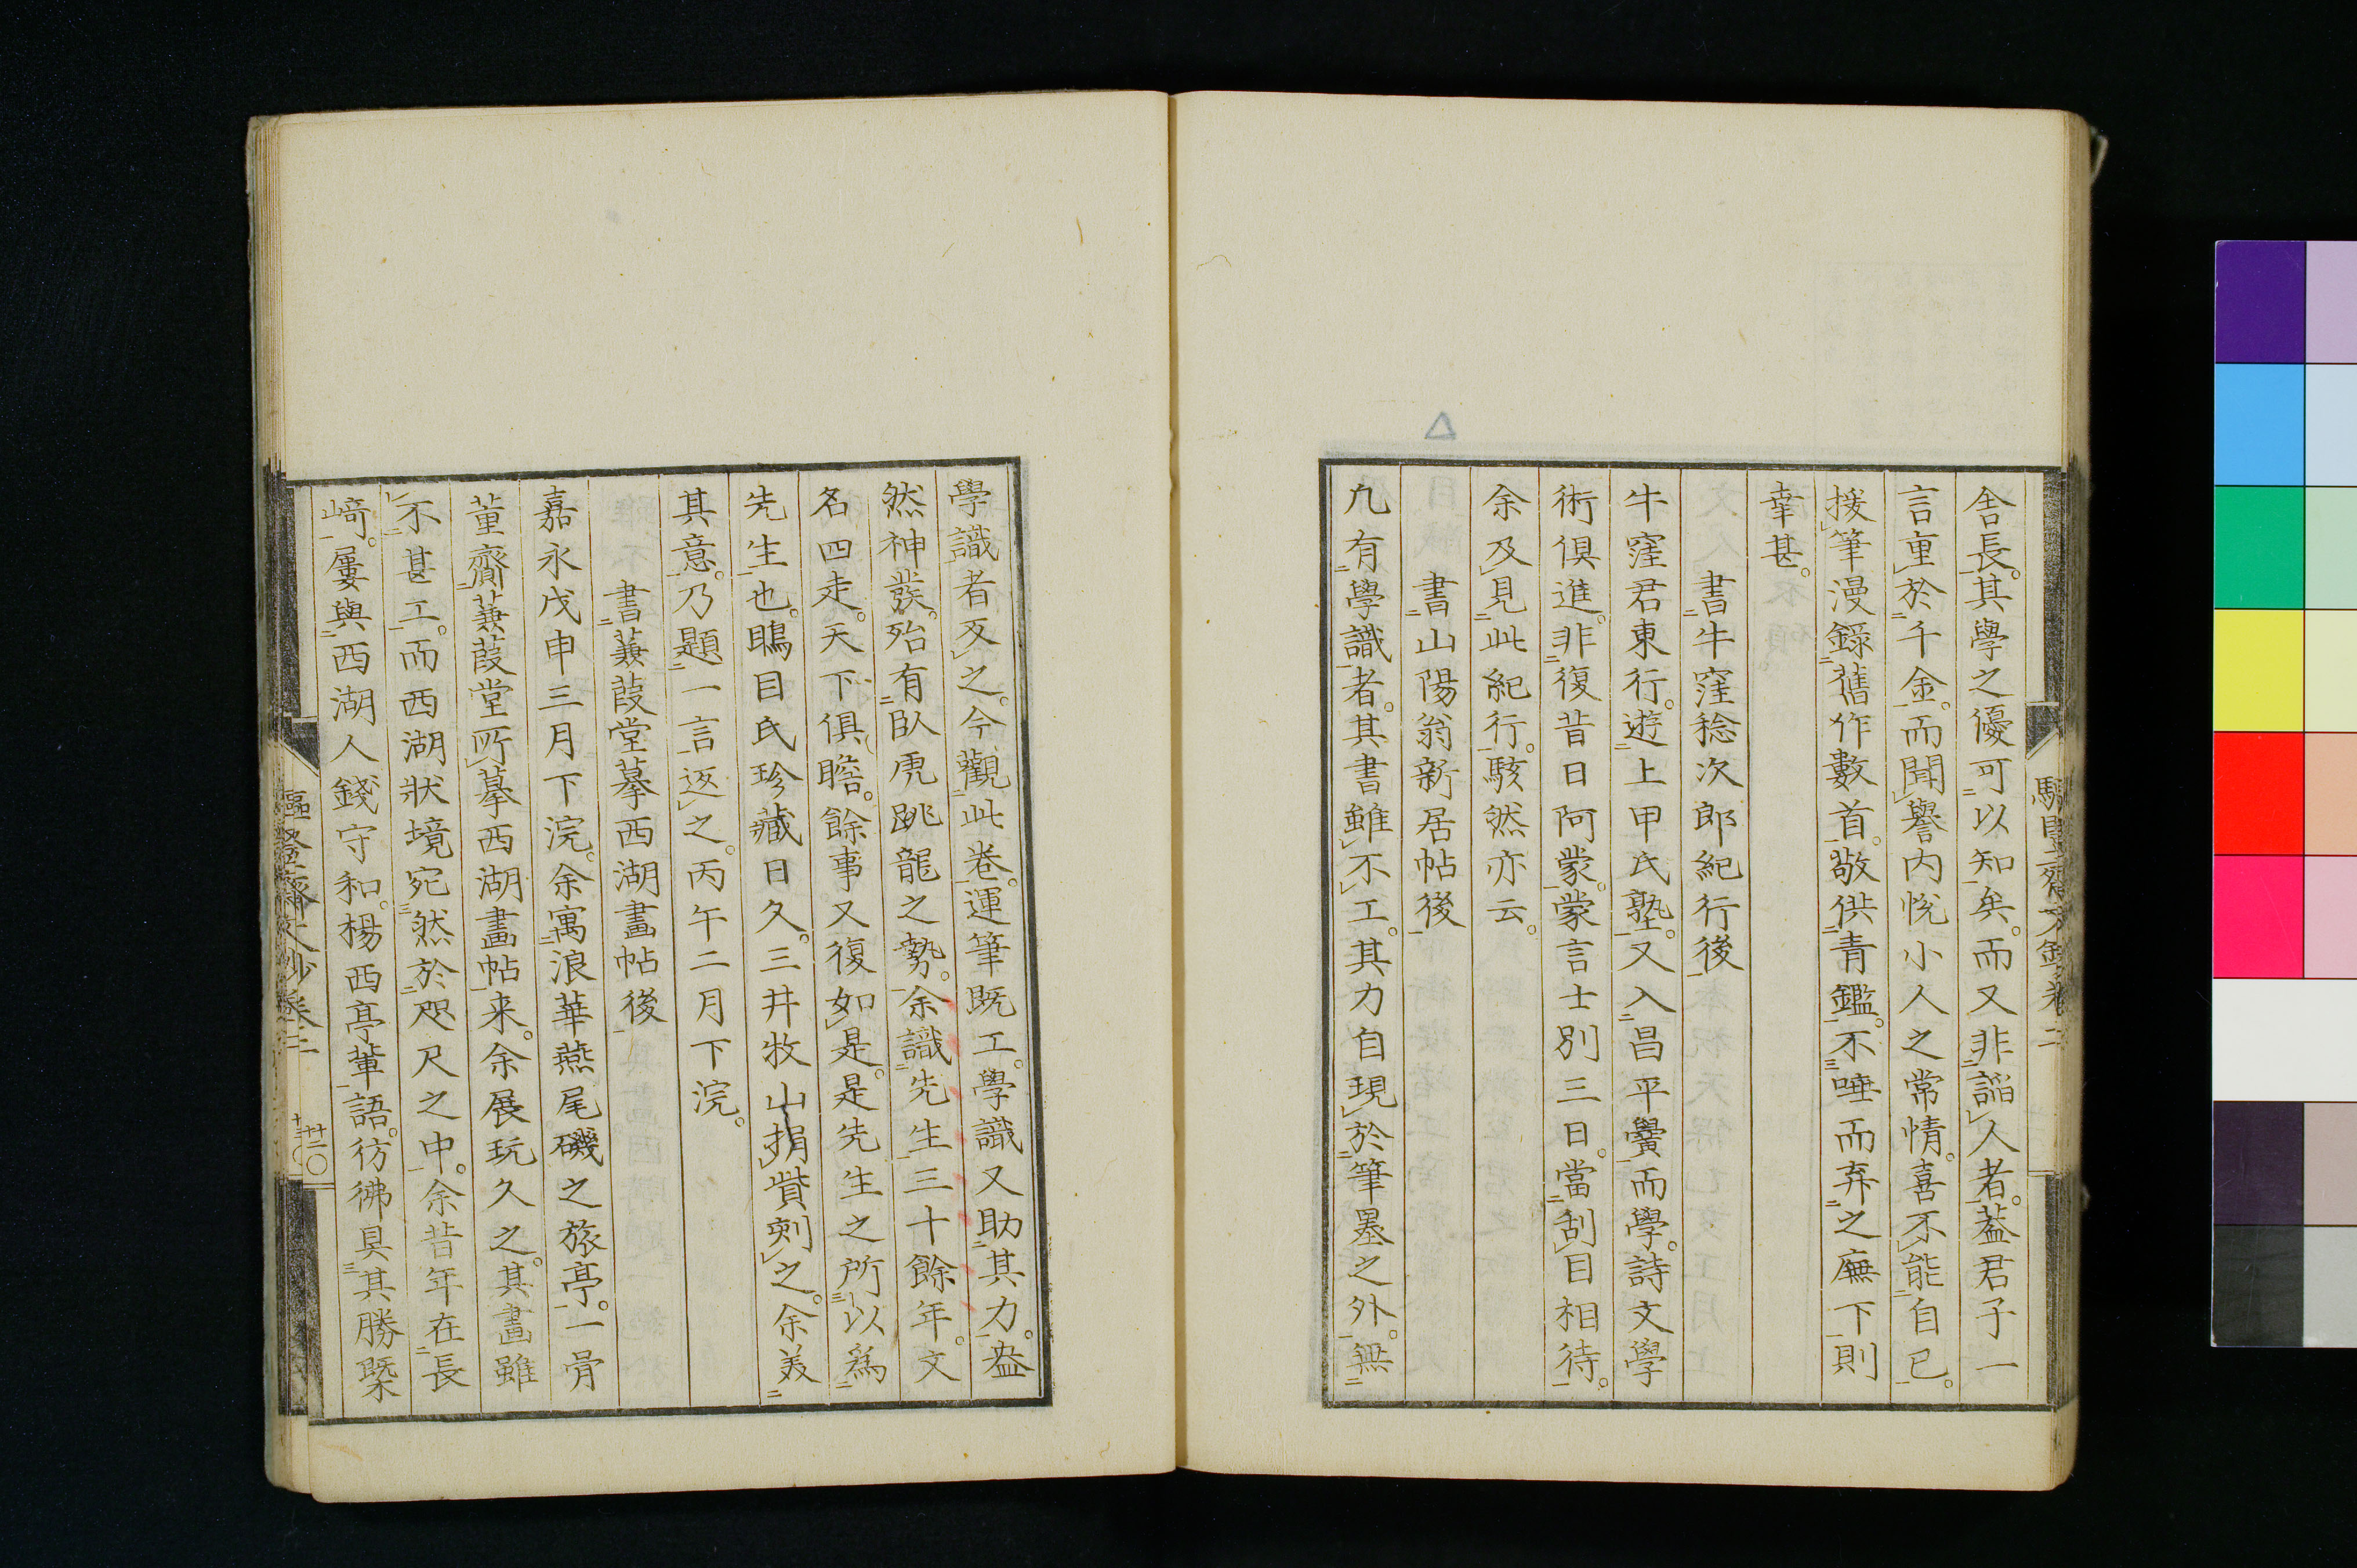 舎長。其學之優可以知矣。而又非謟人者。葢君子一
言重於千金。而聞譽内悅小人之常情。喜不能自已。
援筆漫錄舊作數首。敬供青鑑。不唾而弃之廡下則
幸甚。
書牛窪稔次郎紀行後
牛窪君東行。遊上甲氏塾。又入昌平黌而學。詩文學
術俱進。非復昔日阿蒙。蒙言士別三日。當刮目相待。
余及見此紀行。駭然亦云。
書山陽翁新居帖後
凢有學識者。其書雖不工。其力自現於筆墨之外。無
學識者反之。今觀此巻。運筆既工。學識又助其力。葢
然神發。殆有臥虎跳龍之勢。余識先生三十餘年。文
名四走。天下俱瞻。餘事又復如是。是先生之所以爲
先生也。鵰目氏珍藏日久。三井牧山捐貲刻之。余美
其意。乃題一言返之。丙午二月下浣。
書蒹葭堂摹西湖畫帖後
嘉永戊申三月下浣。余寓浪華燕尾磯之旅亭。一骨
董齎蒹葭堂所摹西湖畫帖来。余展玩久之。其畫雖
不甚工。而西湖狀境宛然於咫尺之中。余昔年在長
﨑。屢與西湖人錢守和。楊西亭輩語。彷彿具其勝槩